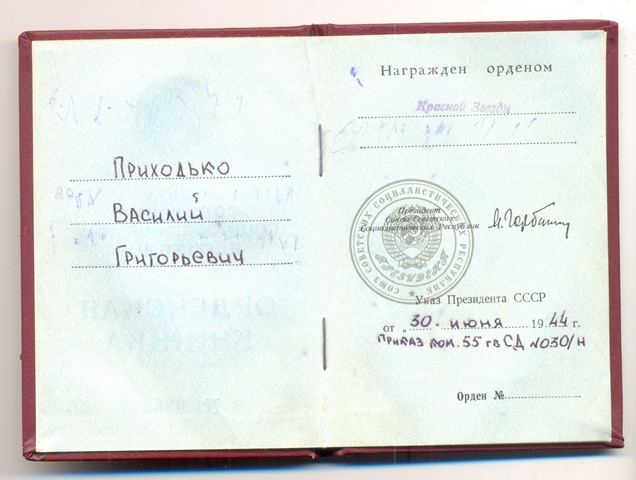 Приходько
Василий
Григорьевич
Награжден орденом
Красной Звезды
СОЮЗ СОВЕТСКИХ СОЦИАЛИСТИЧЕСКИХ РЕСПУБЛИК
ПРЕЗИДЕНТ
Президент
Союза Советских
Социалистических Республик
Указ Президента СССР
от „30" июня 1944 г.
Приказ ком. 55 гв СД №030/н
Орден №
ОРДЕНСКАЯ
КНИЖКА